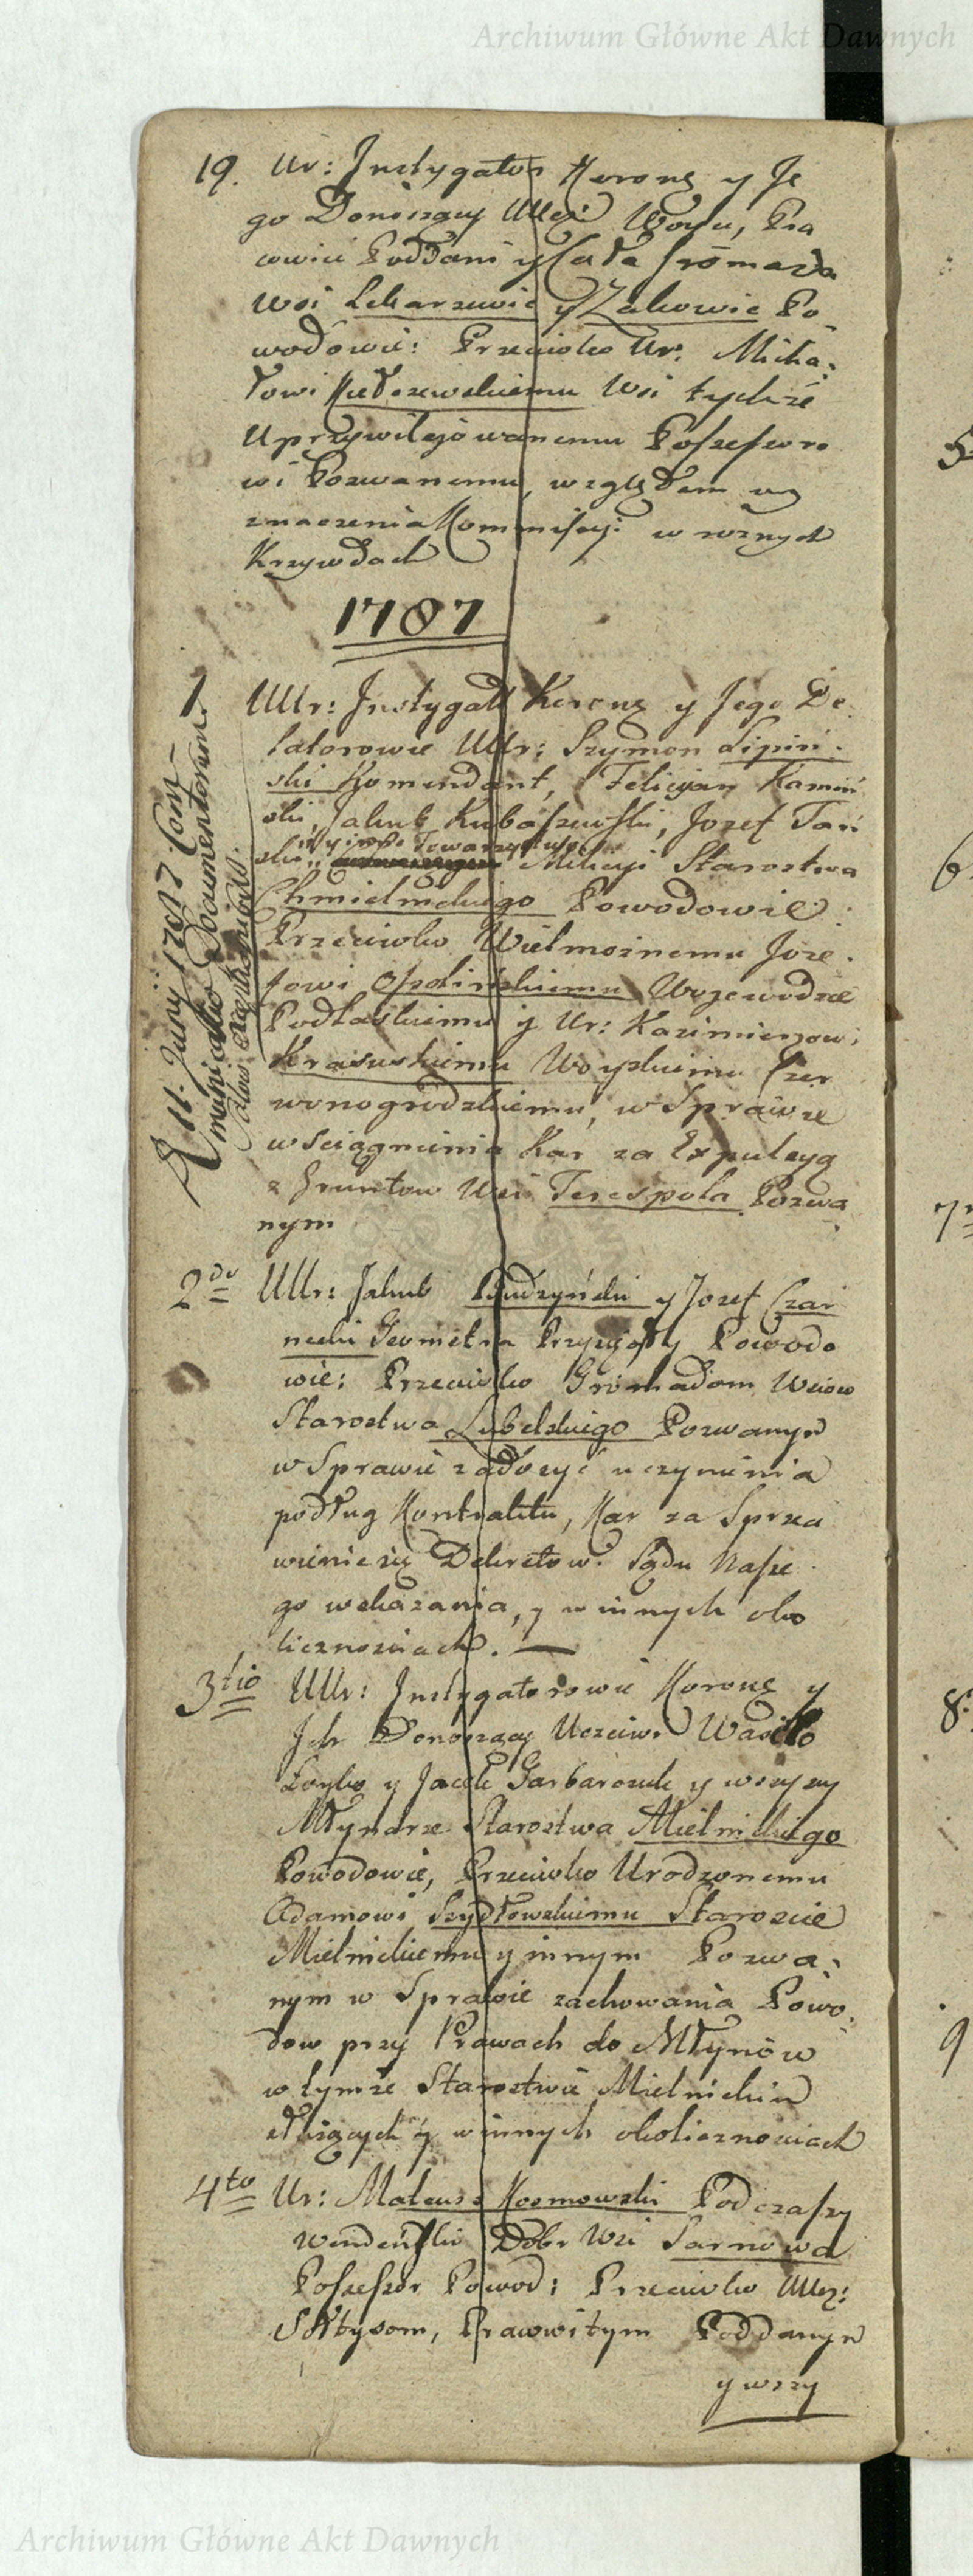 Archiwum Główne Akt Dawnych
19. Ur: Instygator Korony y Je
go Donoszący Ucz: Woyt, Pra
cowici Poddani y Cała Gromada
Wsi Lekarzewic y Zakowic Po
wodowie: Przeciwko Ur: Micha-
łowi Kiełczewskiemu Wsi tychże
Uprzywilejowanemu Possessoro
wi Pozwanemu, względem wy
znaczenia Kommissyi w roznych
Krzywdach
1787
1. UUr: Instygat Korony y Jego De
latorowie UUr: Szymon Lipiń-
ski Komendant, Felicyan Kamiń
ski, Jakub Kubaszewski, Jozef Tań
ski, y inne Towarzystwo Milicyi Starostwa
Chmielnickiego Powodowie
Przeciwko Wielmożnemu Joze-
fowi Ossolińskiemu Wojewodzie
Podlaskiemu y Ur: Kazimierzowi
Krasuskiemu Woyskiemu Czer
wonogrodzkiemu, w Sprawie
wściągnienia Kar za Expulsyą
z Gruntow Wsi Terespola Pozwa
nym
11. Juny 1787
Documentorum
2do UUr: Jakub Budzyński y Jozef Czar
necki Geometra Przysięgły Powodo
wie: Przeciwko Gromadom Wsiow
Starostwa Lubelskiego Pozwanym
w Sprawie zadosyć uczynienia
podług Kontraktu, Kar za Sprzeci
wienie się Dekretow: Sądu Nasze
go wskazania, y w innych oko
licznosciach. —
3tio UUr: Instygatorowie Korony y
Jch Donoszący Uczciwi Wasilo
y Jacek Garbarczuk y wszyscy
Młynarze Starostwa Mielnickiego
Powodowie, Przeciwko Urodzonemu
Adamowi Szydłowskiemu Staroscie
Mielnickiemu y innym Pozwa-
nym w Sprawie zachowania Powo-
dow przy Prawach do Młynów
w tymże Starostwie Mielnickim
służących y w innych okolicznosciach
4to Ur: Mateusz Kosmowski Podczaszy
Wendenski Dobr Wsi Sarnowa
Possessor Powod: Przeciwko Ucz:
Sołtysom, Prawowitym Poddanym
y wszy
5
6.
7
8.
9
Archiwum Główne Akt Dawnych